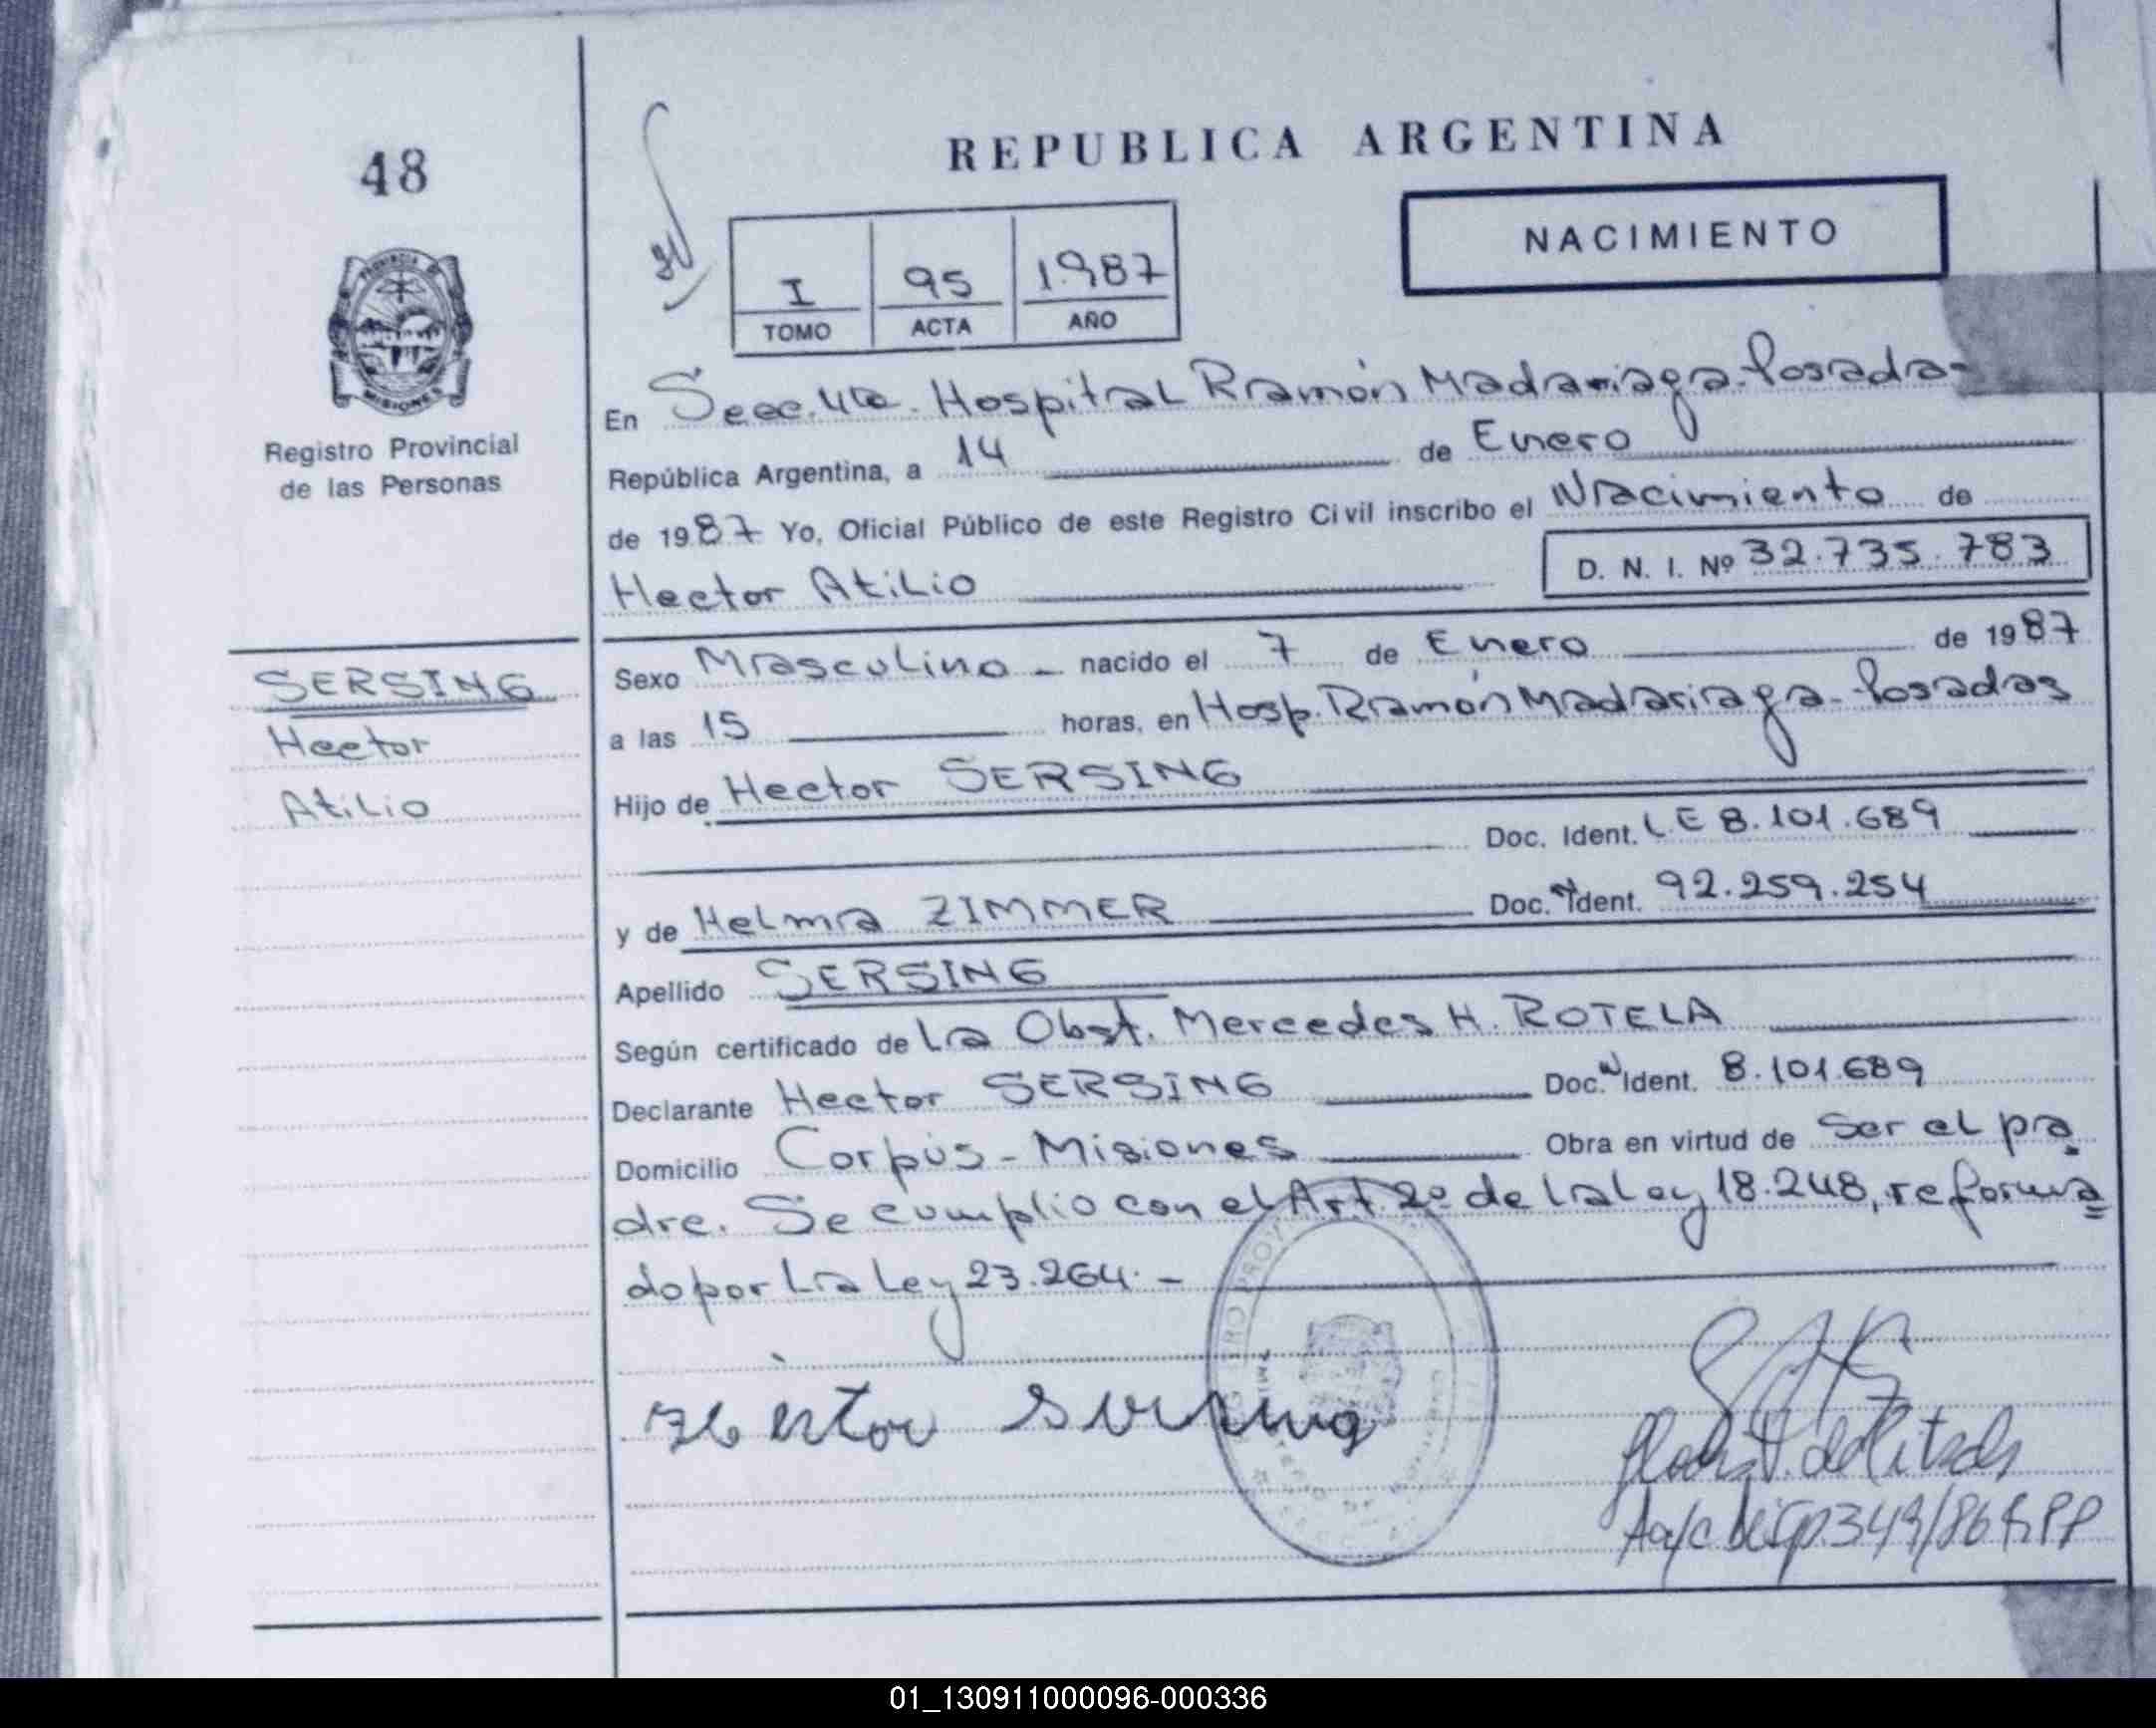 48
REPUBLICA ARGENTINA
NACIMIENTO
I 95 1987
TOMO ACTA AÑO
PROVINCIA D
MISIONES
Registro Provincial
de las Personas
En Secc. 4ta. Hospital Ramón Madariaga-Posada-
República Argentina, a 14 de Enero
de 1987 Yo, Oficial Público de este Registro Civil inscribo el Nacimiento de
Hector Atilio D. N. I. Nº 32.735.783
SERSING
Hector
Atilio
Sexo Masculino - nacido el 7 de Enero de 1987
a las 15 horas, en Hosp. Ramón Madariaga-Posadas
Hijo de Hector SERSING
Doc. Ident. LE 8.101.689
y de Helma ZIMMER Doc. N Ident. 92.259.254
Apellido SERSING
Según certificado de La Obst. Mercedes H. ROTELA
Declarante Hector SERSING Doc. N Ident. 8.101.689
Domicilio Corpus - Misiones Obra en virtud de Ser el pa
dre. Se cumplio con el Art. 2º de la Ley 18.248, reforma
do por La Ley 23.264. -
Hector Sersing
349/86
01_130911000096-000336